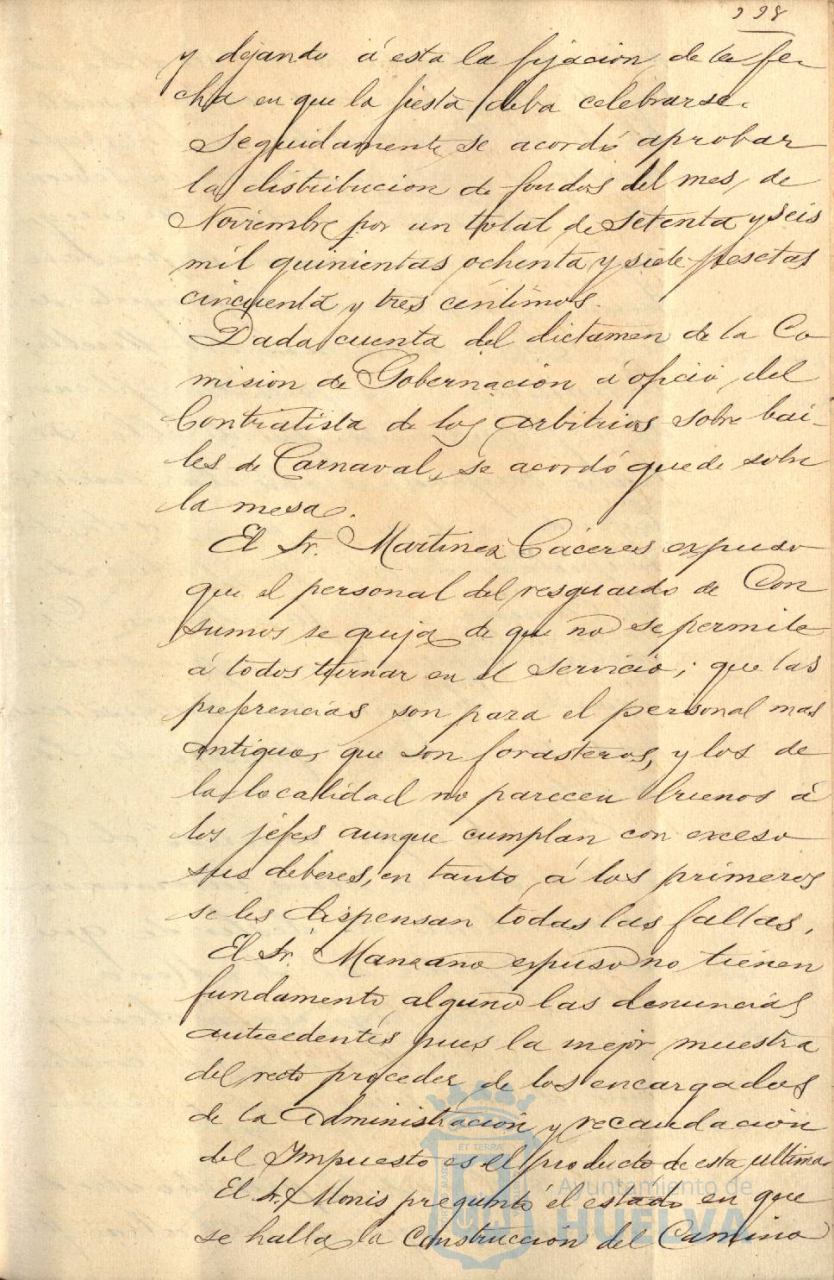 998
y dejando á esta la fijacion de la fe-
cha en que la fiesta deba celebrarse.
Seguidamente se acordó aprobar
la distribucion de fondos del mes de
Noviembre por un total de setenta y seis
mil quinientas ochenta y siete pesetas
cincuenta y tres centimos.
Dada cuenta del dictamen de la Co
mision de Gobernación á oficio del
Contratista de los arbitrios sobre bai-
les de Carnaval, se acordó quede sobre
la mesa.
El Sr. Martinez Cáceres expuso
que el personal del resguardo de Con
sumos se queja de que no se permite
á todos turnar en el servicio; que las
preferencias son para el personal mas
antiguo, que son forasteros, y los de
la localidad no parecen buenos á
los jefes aunque cumplan con exceso
sus deberes, en tanto á los primeros
se les dispensan todas las faltas.
El Sr. Manzano expuso no tienen
fundamento alguno las denuncias
antecedentes pues la mejor muestra
del recto proceder de los encargados
de la administración y recaudación
del Impuesto es el producto de esta ultima
El Sr. Monis preguntó el estado en que
se halla la construcción del Camino
Ayuntamiento de
HUELVA